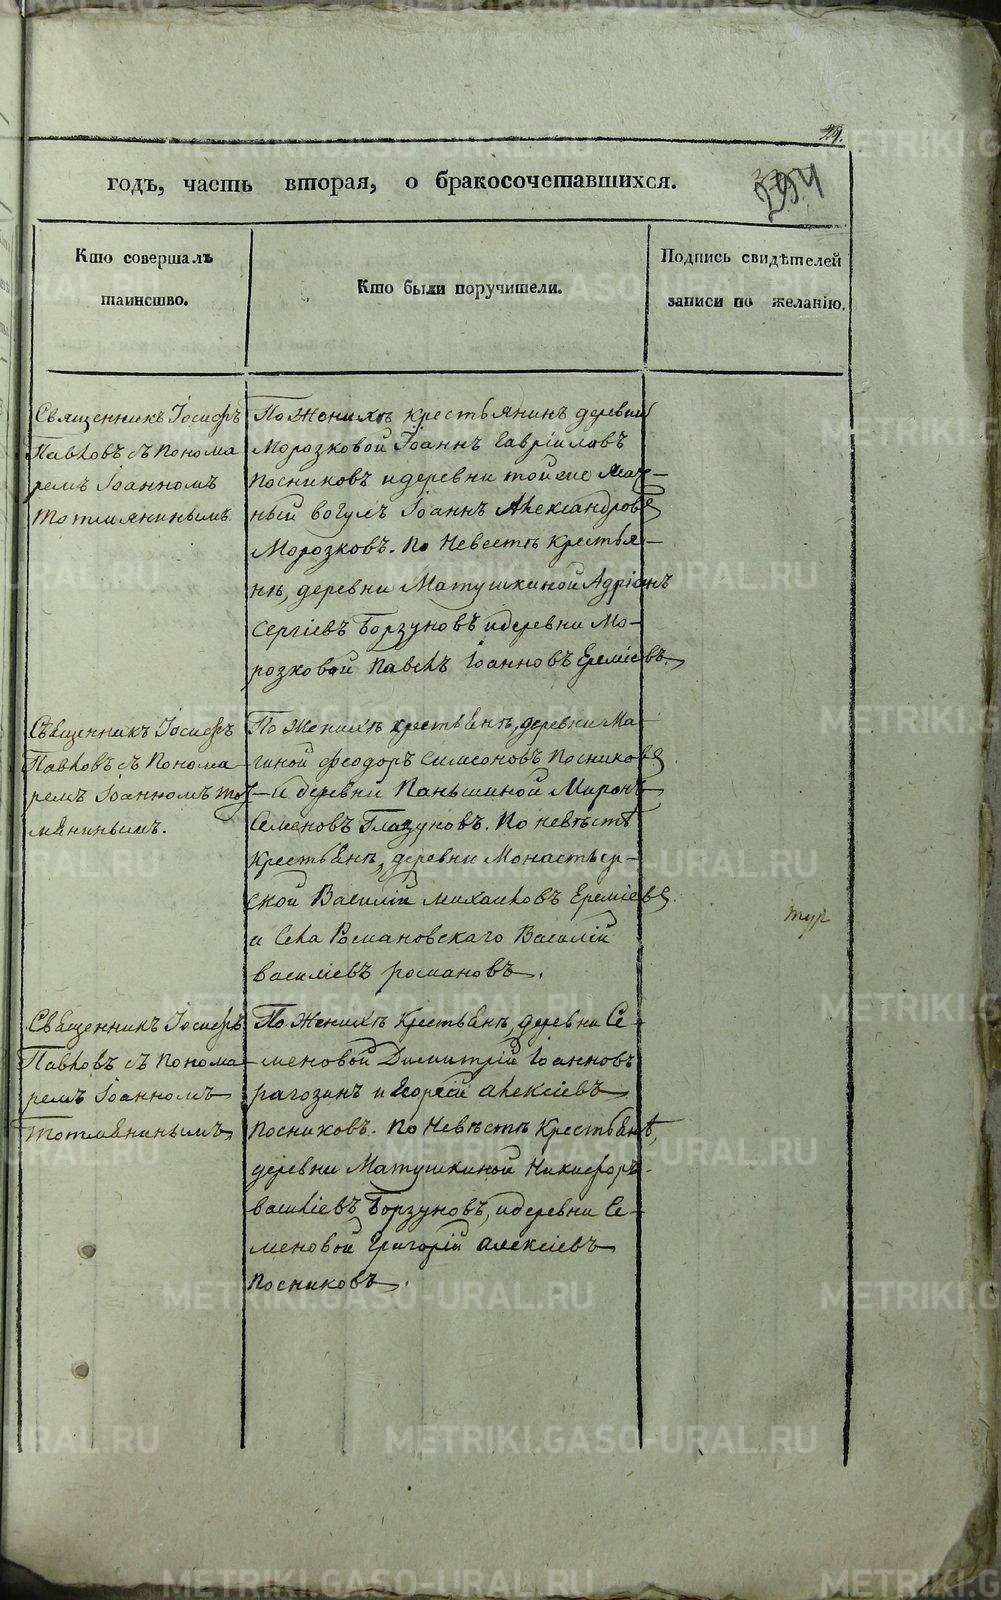 29.
годъ, часть вторая, о бракосочетавшихся.
294
Кто совершалъ
таинство.
Кто были поручители.
Подпись свидѣтелей
записи по желанію.
Священникъ Іосифъ
Павловъ съ понома
ремъ Іоанномъ
Тотмянинымъ.
По Женихѣ крестьянинъ деревни
Морозковой Іоаннъ Гавріиловъ
Посниковъ и деревни тойже
ный вогулъ Іоаннъ Александровъ
Морозковъ. По Невестѣ крестья-
нѣ, деревни Матушкиной Адріанъ
Сергіевъ Борзуновъ и деревни Мо-
розковой Павелъ Іоанновъ Еремѣевъ.
Священникъ Іосифъ
Павловъ съ Понома
ремъ Іоанномъ Тот
мянинымъ.
По Женихѣ крестьянѣ, деревни Ма-
гиной Феодоръ Симеоновъ Посниковъ
и деревни Паньшиной Миронъ
Семеновъ Глазуновъ. По невѣстѣ
крестьянѣ, деревни Монастыр-
ской Василій Михаиловъ Еремѣевъ
и Села Романовскаго Василій
Василіевъ Романовъ.
тур
Священникъ Іосифъ
Павловъ съ понома
ремъ Іоанномъ
Тотмянинымъ
По Женихѣ крестьянѣ, деревни Се-
меновой Димитрій Іоанновъ
Рагозинъ и Георгій Алексіевъ
Посниковъ. По Невѣстѣ Крестьянѣ,
деревни Матушкиной Никифоръ
Василіевъ Борзуновъ, и деревни Се-
меновой Григорій Алексіевъ
Посниковъ.
METRIKI.GASO-URAL.RU